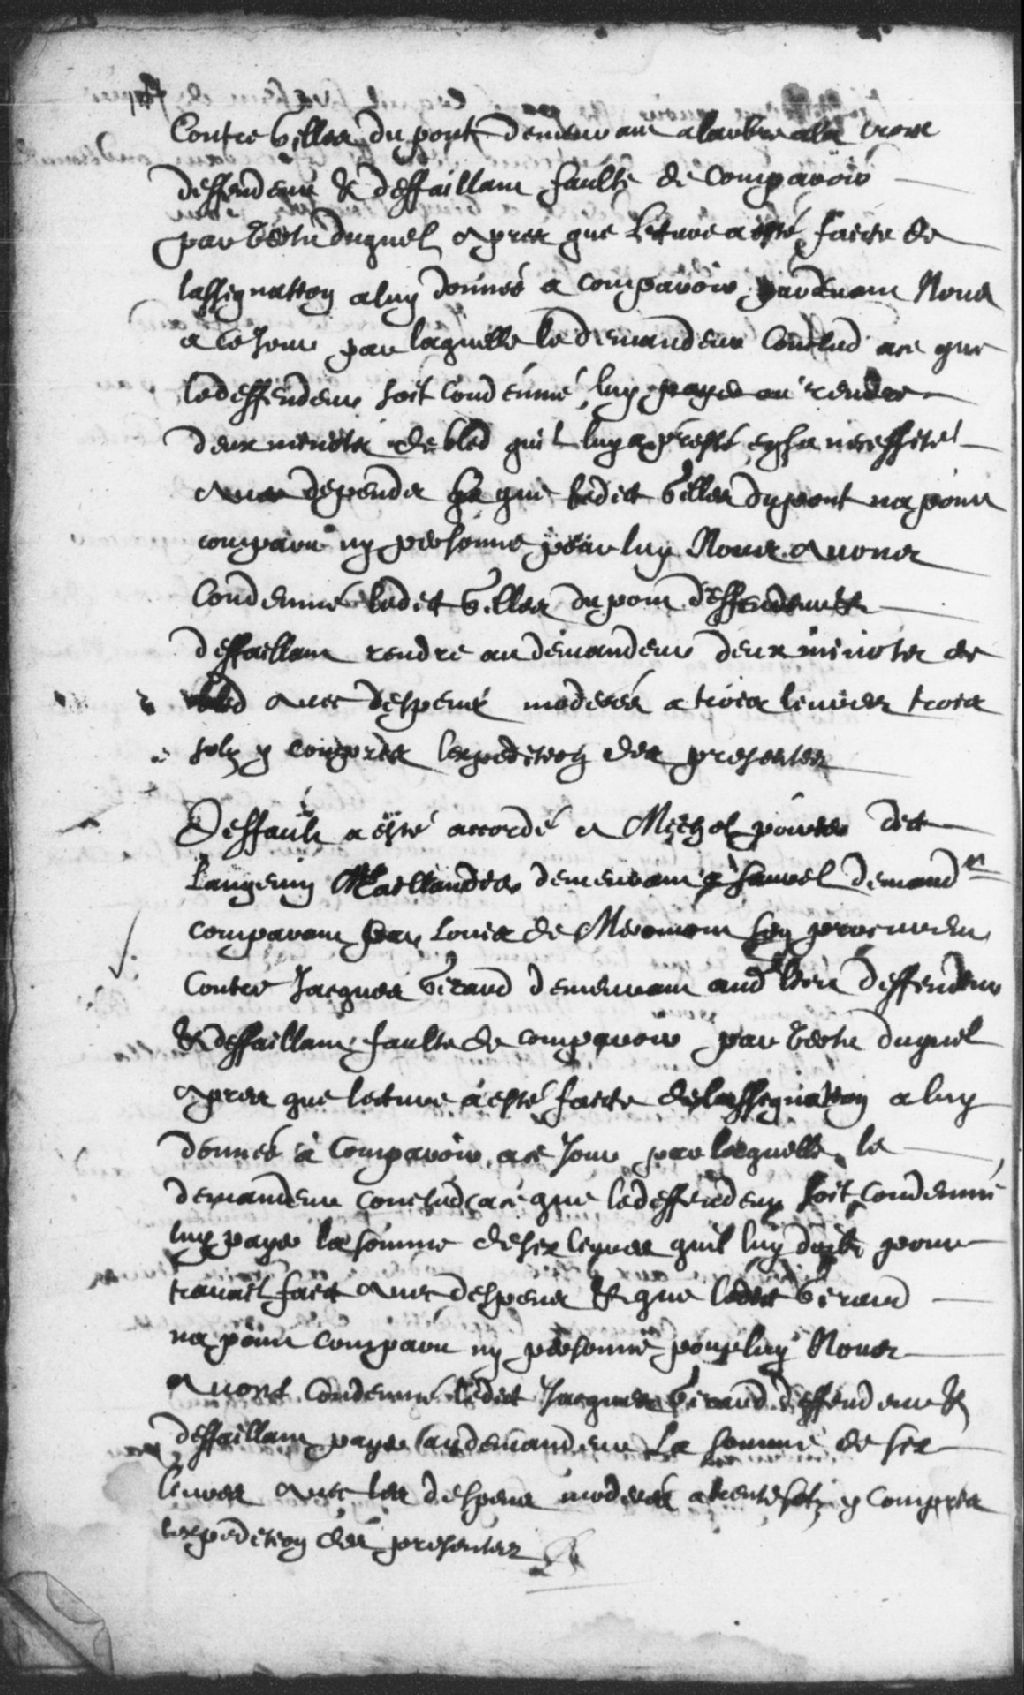 Contre Gilles du pont demeurant alarbre ala croix
deffendeur & deffaillant faulte de comparoir
par vertu duquel apres que lecture a esté faicte de
lassignation a luy donnée a comparoir pardevant Nous
a ce Jour par laquelle le demandeur Conclud ace que
le deffendeur soit Condemné luy payer ou rendre
deux minots de bled quil luy a presté en sa necessité
avec depends & que ledict Gilles dupont na point
comparu ny personne pour luy Nous avons
Condemné ledict Gilles du pont deffendeur &
deffaillant rendre au demandeur deux minots de
bled avec despens moderés a trois livres trois
solz y compris lexpedition des presentes
Deffault a esté accordé a Michel poirier dict
Langevin Taillandier demeurant a Saurel demandr
comparant par Louis de Miromont son procureur
Contre Jacques Girard demeurant aud lieu deffendeur
& deffaillant faulte de comparoir par vertu duquel
apres que lecture a esté faicte de lassignation a luy
donnée a Comparoir a ce Jour par laquelle le
demandeur conclud ace que le deffendeur soit Condemné
luy payer la somme de six livres quil luy doibt pour
travail faict avec despens & que ledict Girard
na point comparu ny personne pour luy Nous
avons Condemné ledict Jacques Girard deffendeur &
deffaillant payer au demandeur La somme de six
livres avec les despens moderés a trente solz y compris
lexpedition des presentes